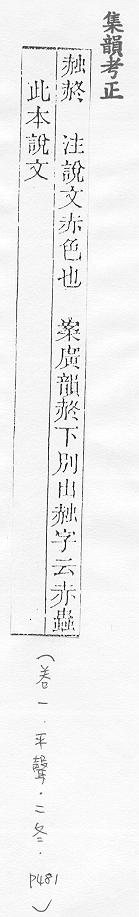 集韻考正
赨 注說文赤色也 案廣韻下別出赨字云赤蟲
此本說文
(卷一.平聲.二冬.P481)